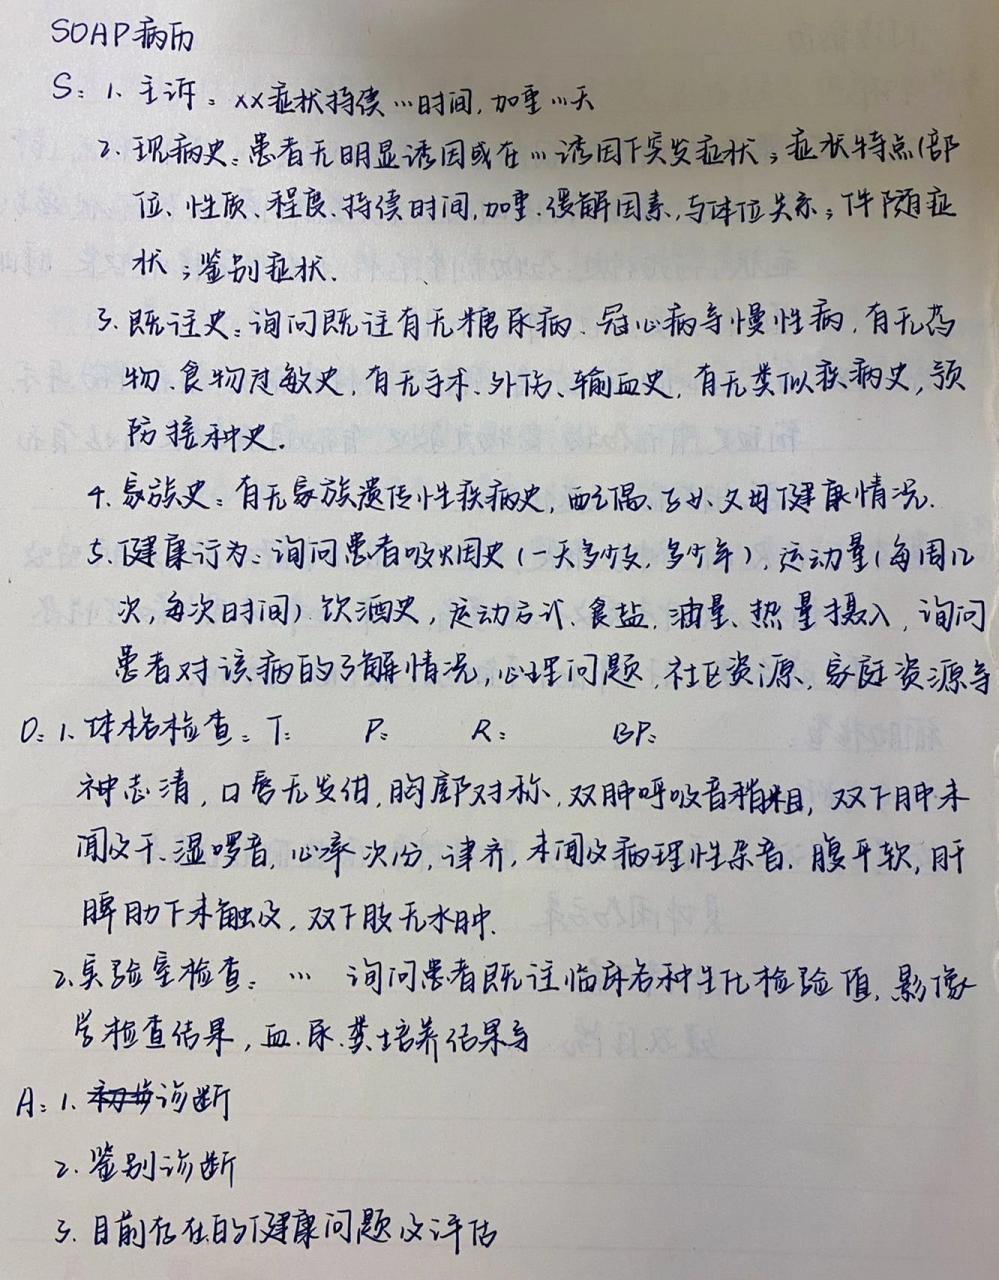 SOAP病历
S：1、主诉：xx症状持续…时间，加重…天
2、现病史：患者无明显诱因或在…诱因下突发症状；症状特点（部
位、性质、程度、持续时间，加重、缓解因素，与体位关系；伴随症
状；鉴别症状.
3、既往史：询问既往有无糖尿病、冠心病等慢性病，有无药
物、食物过敏史，有无手术、外伤、输血史，有无类似疾病史，预
防接种史.
4、家族史：有无家族遗传性疾病史，配偶、子女、父母健康情况.
5、健康行为：询问患者吸烟史（一天多少支，多少年），运动量（每周几
次，每次时间）饮酒史，运动方式、食盐，油量、热量摄入，询问
患者对该病的了解情况，心理问题，社区资源，家庭资源等
O：1、体格检查：T： P： R： BP：
神志清，口唇无发绀，胸廓对称，双肺呼吸音稍粗，双下肺未
闻及干、湿啰音，心率 次/分，律齐，未闻及病理性杂音.腹平软，肝
脾肋下未触及，双下肢无水肿.
2、实验室检查：… 询问患者既往临床各种生化检验值，影像
学检查结果，血、尿、粪培养结果等
A：1、初步诊断
2、鉴别诊断
3、目前存在的健康问题及评估